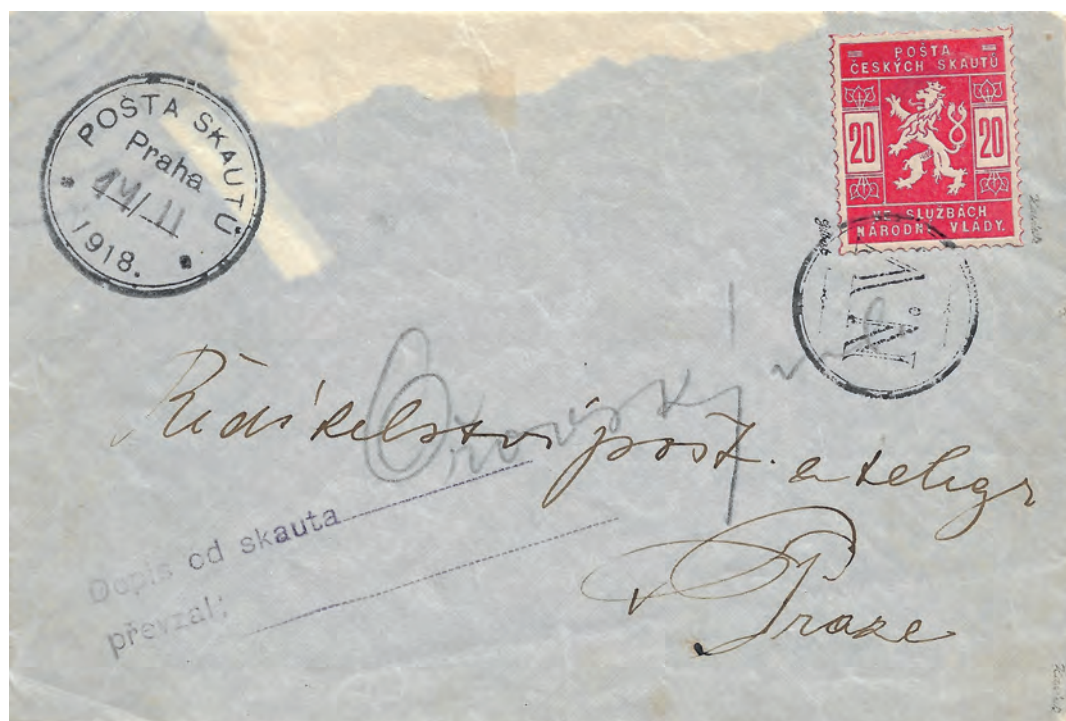 POŠTA SKAUTŮ
Praha
14/11
1918.
POŠTA
ČESKÝCH SKAUTŮ
20 20
VE SLUŽBÁCH
NÁRODNÍ VLÁDY.
N.V
Ředitelství pošt. a telegr
v Praze
Dopis od skauta
převzal: